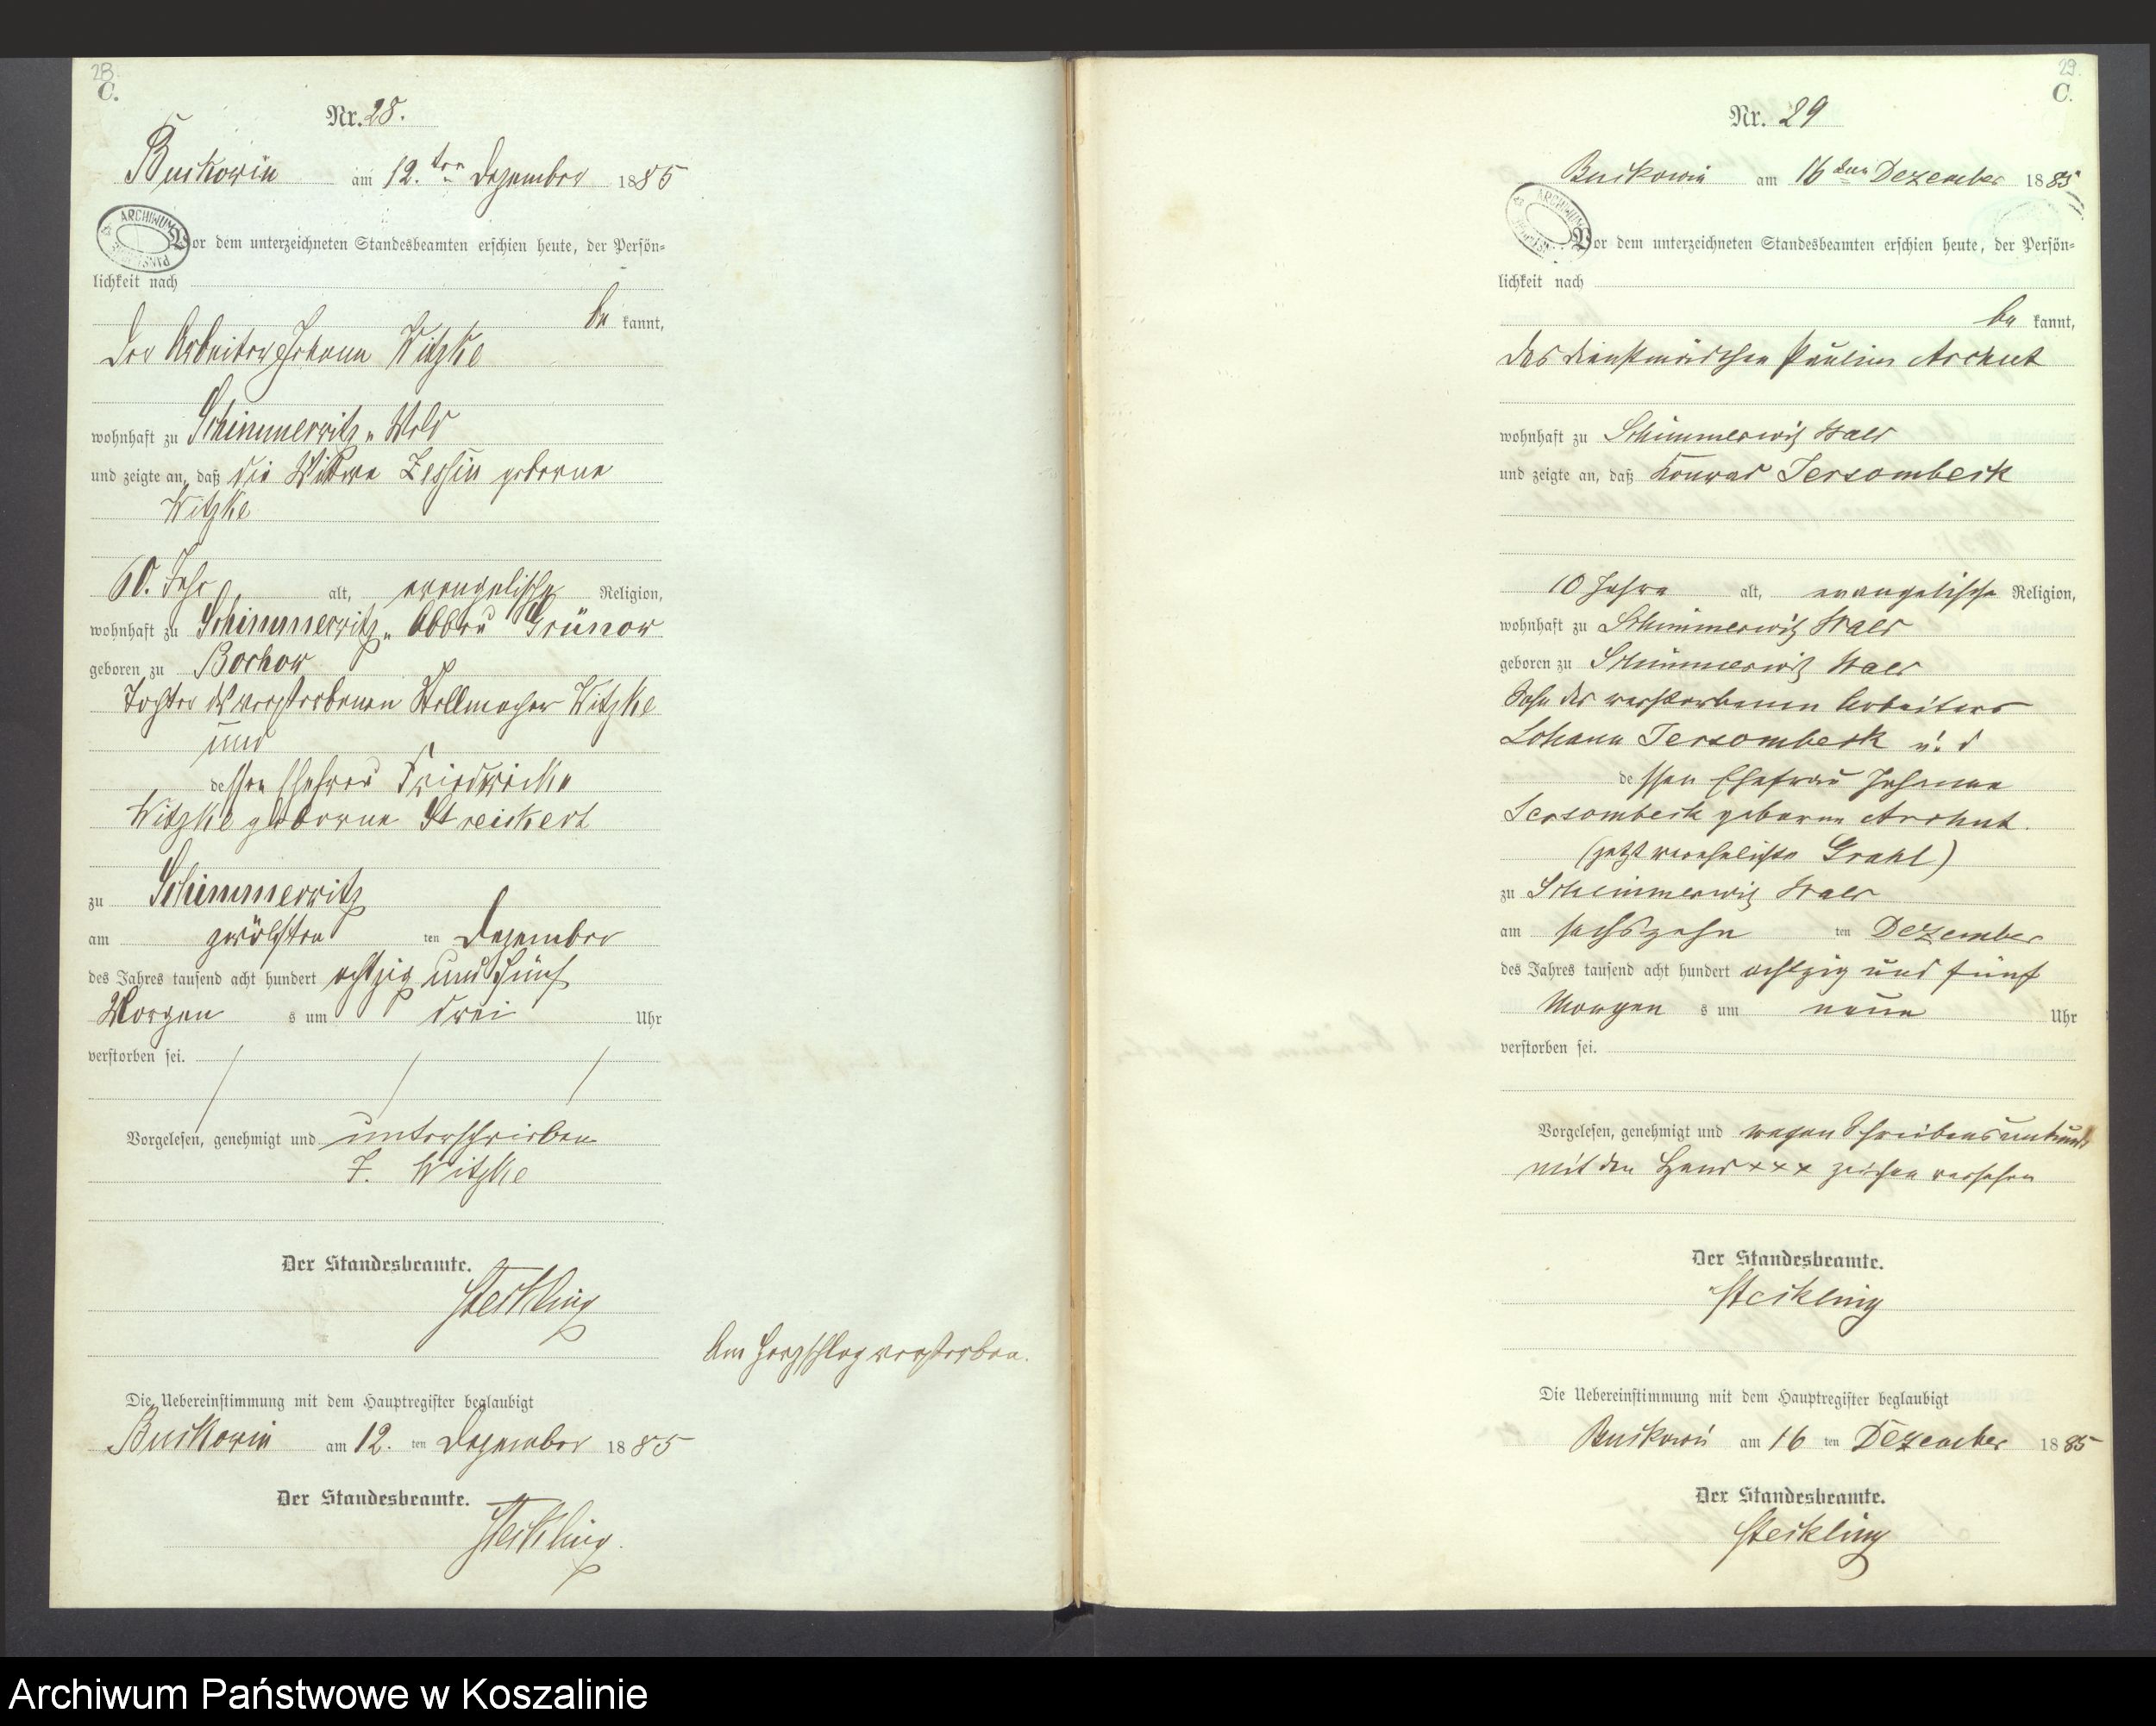 28
C.
Nr. 28.
Buckowin am 12.ten Dezember 1885
ARCHIWUM
Vor dem unterzeichneten Standesbeamten erschien heute, der Persön-
lichkeit nach
be kannt,
der Arbeiter Johann Witzke
wohnhaft zu Schimmerwitz Wald
und zeigte an, daß die Wittwe Zessin geborne
Witzke
60. Jahr alt, evangelische Religion,
wohnhaft zu Schimmerwitz Abbau Grünow
geboren zu Bochow
Tochter des verstorbenen Stellmacher Witzke
und
dessen Ehefrau Friedricke
Witzke geborne Streickert
zu Schimmerwitz
am zwölften ten Dezember
des Jahres tausend acht hundert achtzig und fünf
Morgen s um drei Uhr
verstorben sei.
Vorgelesen, genehmigt und unterschrieben
J. Witzke
Der Standesbeamte.
Steckling
Am Herzschlag verstorben.
Die Uebereinstimmung mit dem Hauptregister beglaubigt
Buckowin am 12. ten Dezember 1885
Der Standesbeamte.
Steckling
29.
C.
Nr. 29
Buckowin am 16ten Dezember 1885
ARCHIWUM
Vor dem unterzeichneten Standesbeamten erschien heute, der Persön-
lichkeit nach
be kannt,
das Dienstmädchen Pauline Archut
wohnhaft zu Schimmerwitz Wald
und zeigte an, daß Konrad Jersombeck
10 Jahre alt, evangelische Religion,
wohnhaft zu Schimmerwitz Wald
geboren zu Schimmerwitz Wald
Sohn des verstorbenen Arbeiters
Johann Jersombeck u. d
dessen Ehefrau Johanne
Jersombeck geborne Archut.
(jetzt verehelichte Grahl)
zu Schimmerwitz Wald
am sechszehn ten Dezember
des Jahres tausend acht hundert achtzig und fünf
Morgen s um neun Uhr
verstorben sei.
Vorgelesen, genehmigt und wegen Schreibensunkunde
mit den Hand xxx zeichen versehen
Der Standesbeamte.
Steckling
Die Uebereinstimmung mit dem Hauptregister beglaubigt
Buckowin am 16 ten Dezember 1885
Der Standesbeamte.
Steckling
Archiwum Państwowe w Koszalinie